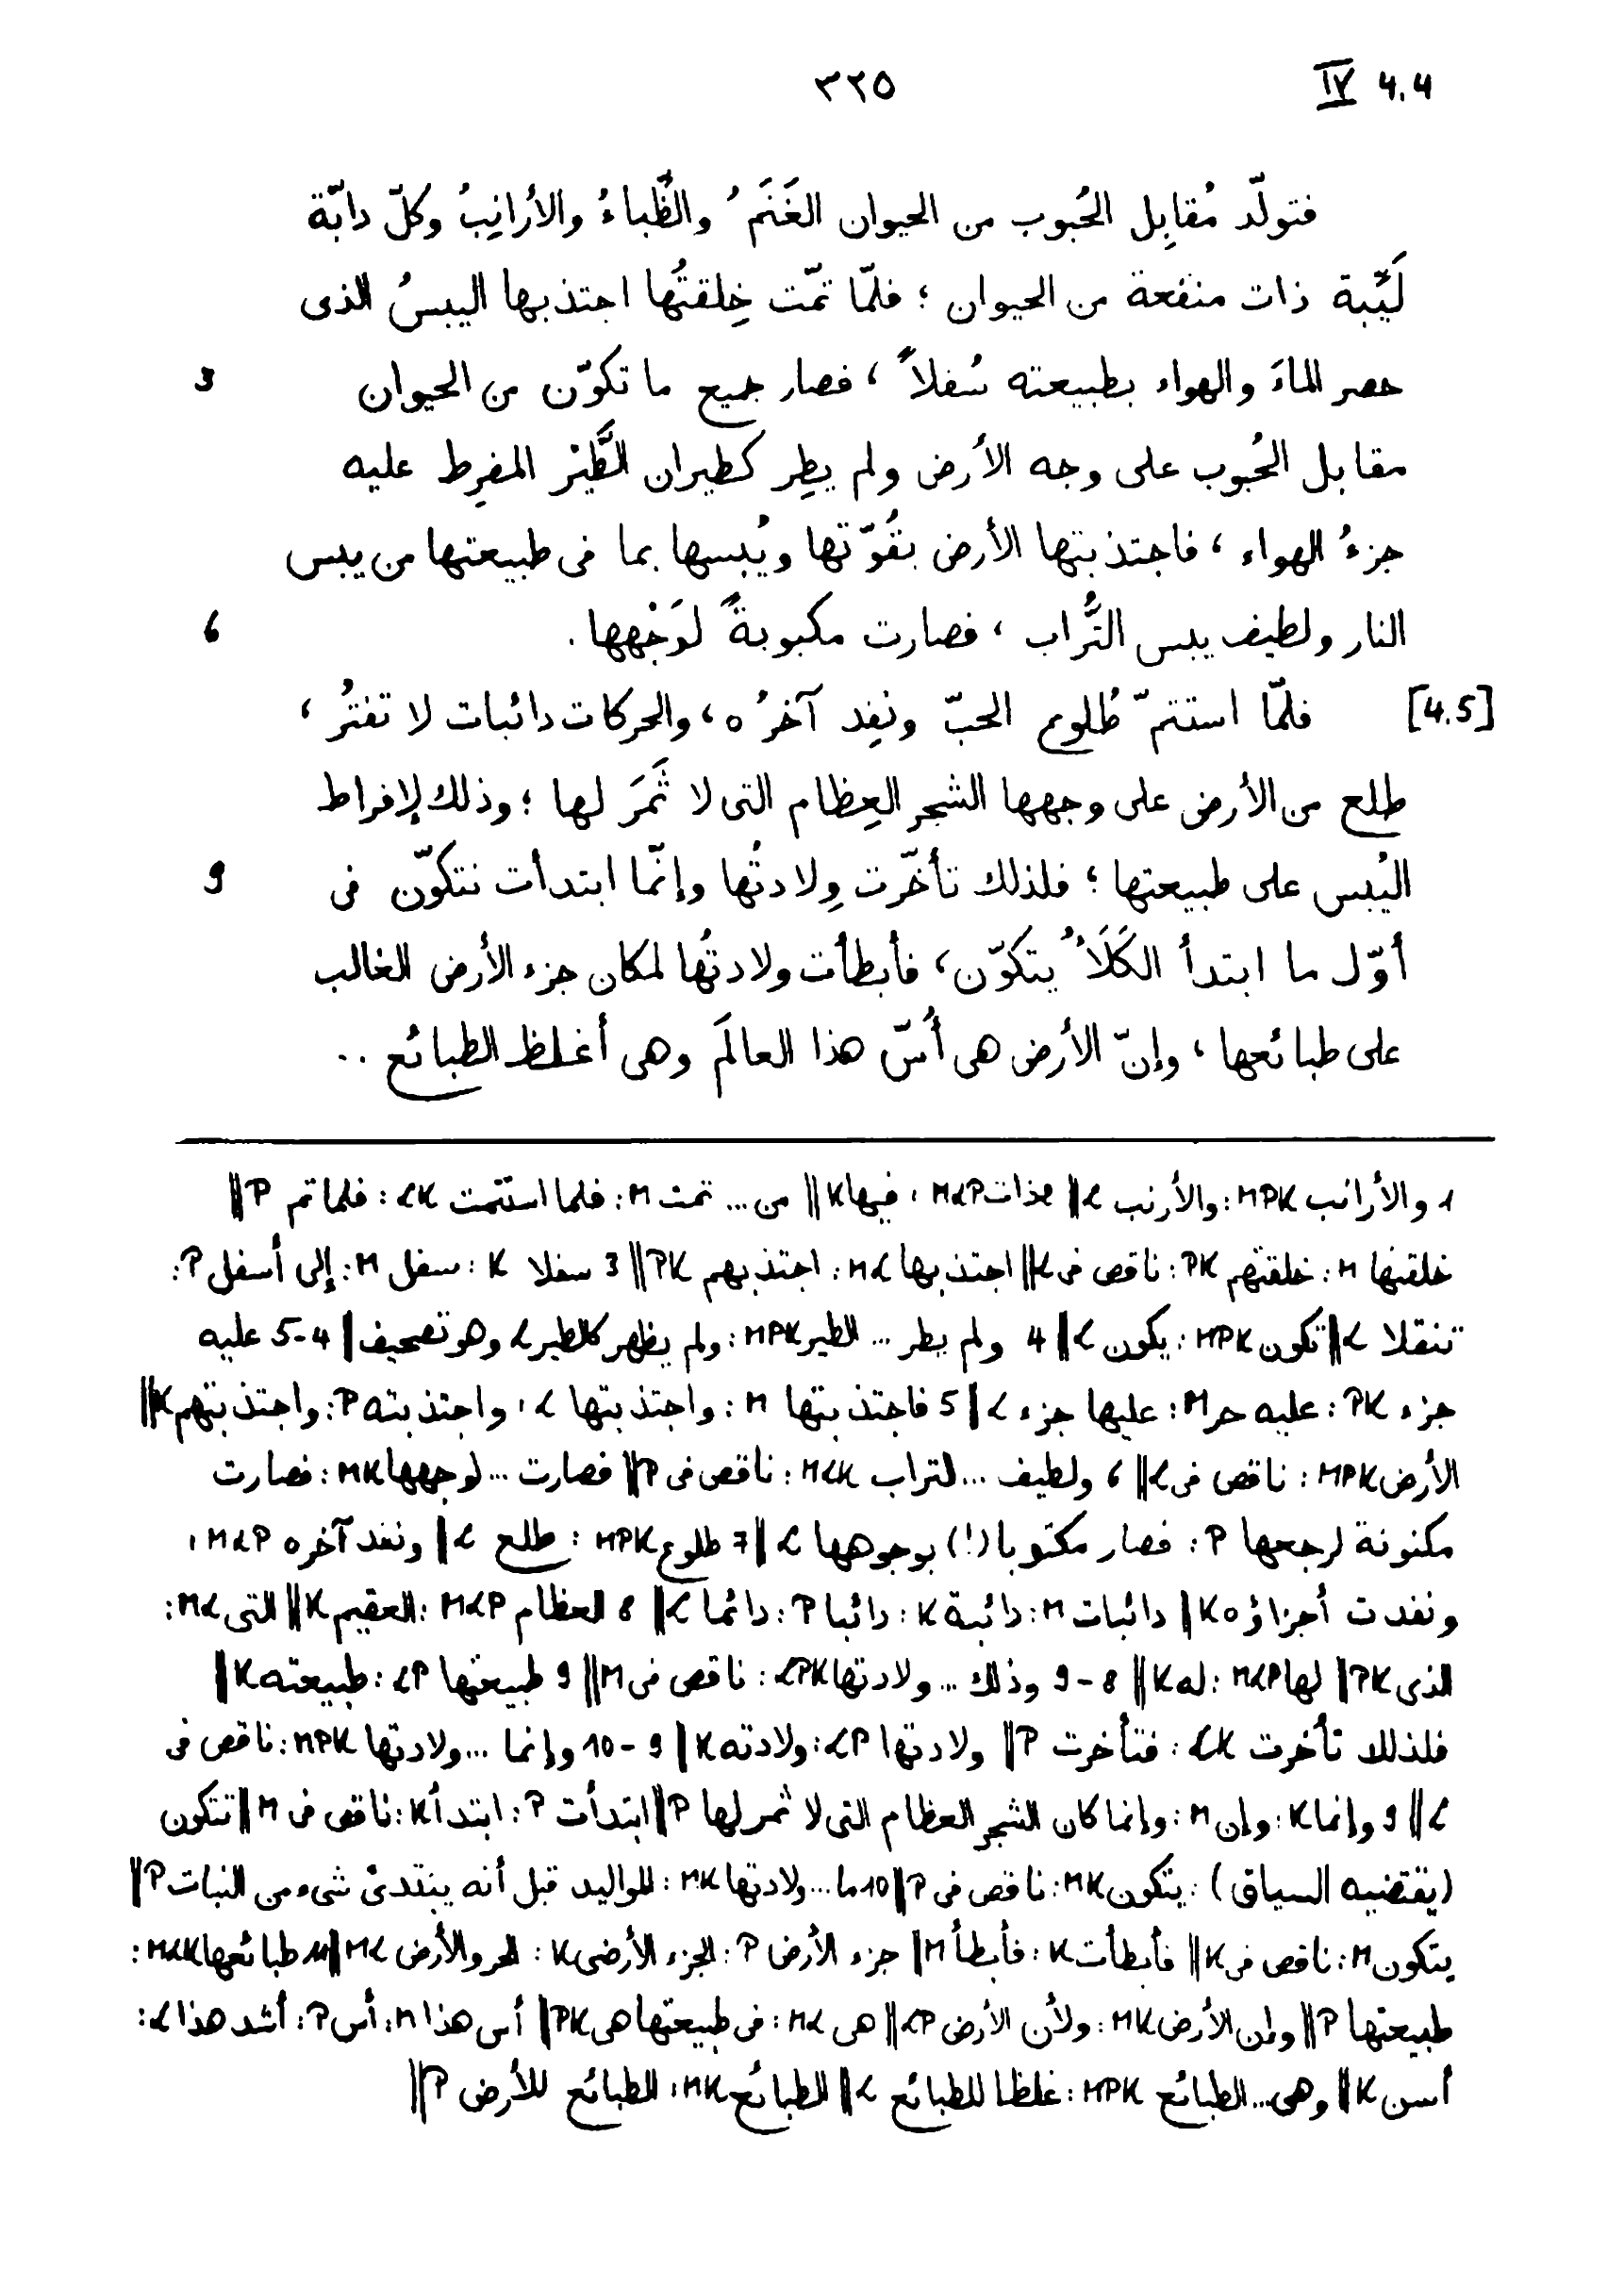 ٣٢٥ IV 4.4
فتولّد مُقابِل الحُبوب من الحيوان الغَنَمُ والظِّباءُ والأرانِبُ وكلّ دابّة
لَيِّنة ذات منفعة من الحيوان ؛ فلمّا تمّت خِلقتُها اجتذبها اليبسُ الذى
حصر الماءَ والهواء بطبيعته سُفلاً ، فصار جميع ما تكوّن من الحيوان 3
مقابل الحُبوب على وجه الأرض ولم يطِر كطيران الطَّيْر المفرِط عليه
جزءُ الهواء ، فاجتذبتها الأرض بقُوّتها ويُبسها بما فى طبيعتها من يبس
النار ولطيف يبس التُّراب ، فصارت مكبوبةً لوَجْهها . 6
[4.5] فلمّا استتمّ طُلوع الحبّ ونفِد آخرُه ، والحركات دائبات لا تفتُر ،
طلع من الأرض على وجهها الشجر العِظام التى لا ثَمَرَ لها ؛ وذلك لإفراط
اليُبس على طبيعتها ؛ فلذلك تأخّرت وِلادتُها وإنّما ابتدأت تتكوّن فى 9
أوّل ما ابتدأ الكَلَأُ يتكوّن ، فأبطأت ولادتُها لمكان جزء الأرض الغالب
على طبائعها ، وإنّ الأرض هى أُسّ هذا العالَم وهى أغلظ الطبائع ..
1 والأرانب MPK : والأرنب L || ذات MLP ، فيها K || من ... تمت M : فلما استتمت LK : فلما تم P ||
خلقتها M : خلقتهم PK : ناقص فى L || اجتذبها ML : اجتذبهم PK || 3 سفلا K : سفل M : إلى أسفل P :
تنقلا L || تكون MPK : يكون L || 4 ولم يطر ... الطير MPK : ولم يظهر كالطير L وهو تصحيف || 4-5 عليه
جزء PK : عليه حر M : عليها جزء L || 5 فاجتذبتها M : واجتذبتها L ، واجتذبته P : واجتذبتهم K ||
الأرض MPK : ناقص فى L || 6 ولطيف ... لتراب MLK : ناقص فى P || فصارت ... لوجهها MK : فصارت
مكنونة لرجعها P : فصار مكتوبا (!) بوجوهها L || 7 طلوع MPK : طلع L || ونفد آخره MLP ،
ونفدت أجزاؤه K || دائبات M : دائبة K : دائبا P : دائما L || 8 العظام MLP : العقيم K || التى ML :
الذى PK || لها MLP : له K || 8-9 وذلك ... ولادتها LPK : ناقص فى M || 9 طبيعتها LP : طبيعته K ||
فلذلك تأخرت LK : فتأخرت P || ولادتها LP : ولادته K || 9-10 وإنما ... ولادتها MPK : ناقص فى
L || 9 وإنما K : وإن M : وإنما كان الشجر العظام التى لا ثمر لها P || ابتدأت P : ابتدأ K : ناقص فى M || تتكون
(يقتضيه السياق) : يتكون MK : ناقص فى P || 10 ما ... ولادتها MK : للمواليد قبل أنه يبتدئ شىء من النبات P ||
يتكون M : ناقص فى K || فأبطأت K : فأبطأ M || جزء الأرض P : الجزء الأرضى K : الحر والأرض ML || 11 طبائعها MLK :
طبيعتها P || وإن الأرض MK : ولأن الأرض LP || هى ML : فى طبيعتها هى PK || أس هذا M : أس P : أشد هذا L :
أسن K || وهى ... الطبائع MPK : غلظا للطبائع L || الطبائع MK ، الطبائع للأرض P ||